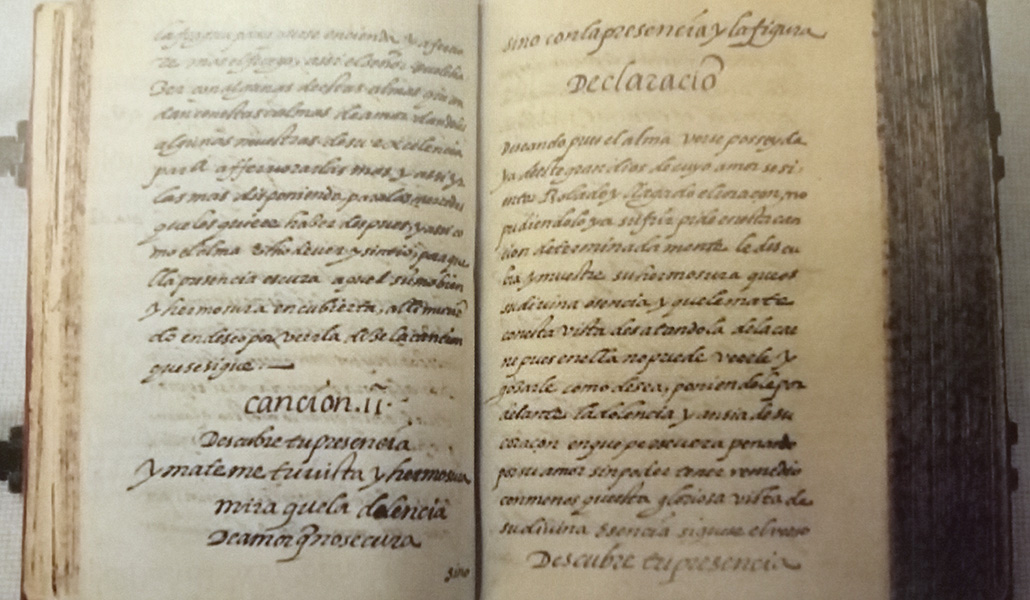 la fragua para que se encienda y afine
mas el fuego, assi el señor suele ha
zer con algunas destas almas que an
dan con estas calmas de amor dandoles
algunas muestras de su excelencia
para affervorarlas mas y assi yr
las mas disponiendo para las mercedes
que les quiere hazer despues y assi co
mo el alma echo de ver y sintio por aque
lla presencia oscura aquel sumo bien
y hermosura encubierta, alli murien
do en desseo por verla dize la cancion
que se sigue
cancion. 11.
Descubre tu presencia
y mate me tu vista y hermosura
mira que la dolencia
De amor q̃ no se cura
sino
sino con la presencia y la figura
Declaracio
Deseando pues el alma verse posseyda
ya deste gran dios de cuyo amor se si
ente Robado y llagado el coraçon, no
pudiendolo ya sufrir pide en esta can
cion determinadamente le descu
bra y muestre su hermosura que es
su divina esencia y que le mate
con esta vista desatandola de la car
ne pues en ella no puede verle y
gozarle como desea, poniendole por
delante la dolencia y ansia de su
coraçon en que persevera penando
por su amor sin poder tener remedio
con menos que esta gloriosa vista de
su divina Esencia siguese el verso
Descubre tu presencia